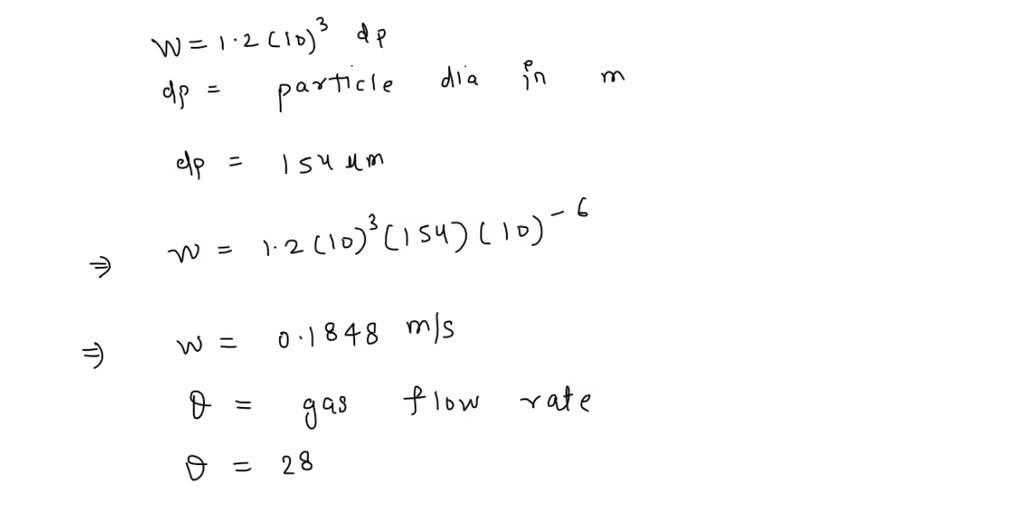 W = 1.2 (10)³ dp
dp = particle dia in m
dp = 154 μm
⇒ W = 1.2 (10)³ (154) (10)⁻⁶
⇒ W = 0.1848 m/s
θ = gas flow rate
θ = 28